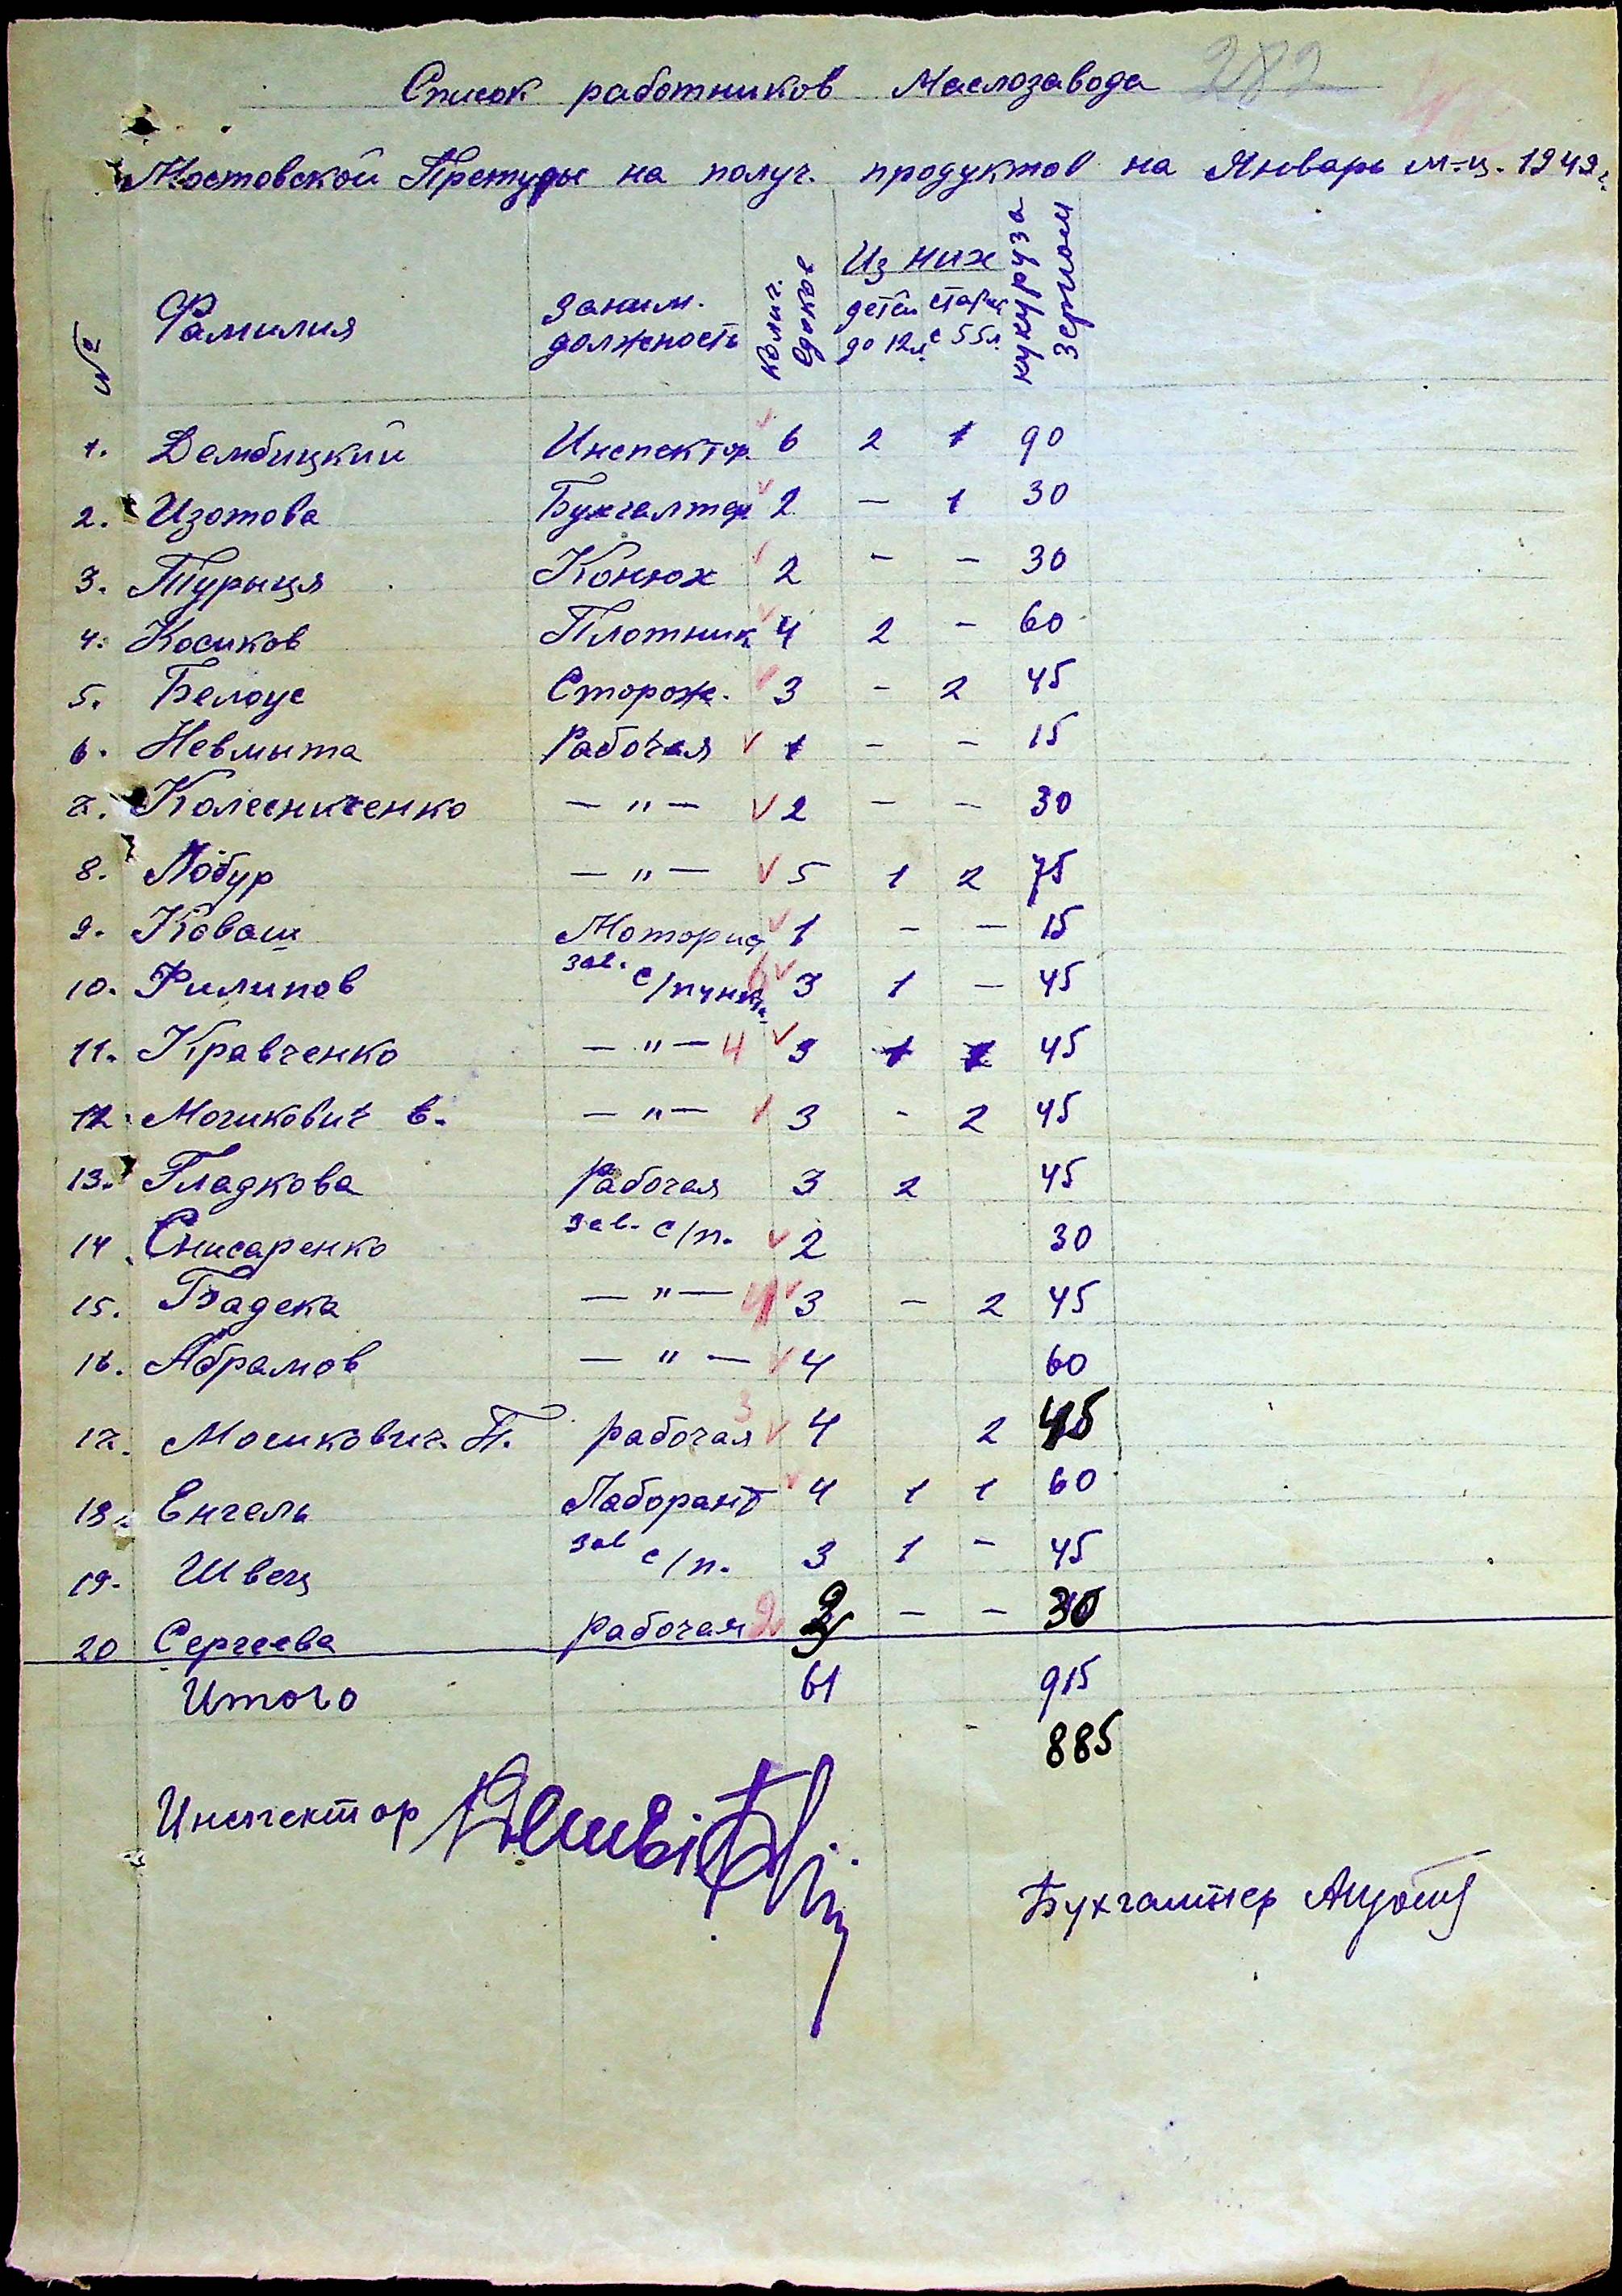 Список работников Маслозавода 282
Мостовской Претуры на получ. продуктов на Январь м-ц. 1942 г.
№ Фамилия Заним. должность Колич. едоков Из них детей до 12 л. стариков с 55 л. кукуруза зерном
1. Дембицкий Инспектор 6 2 1 90
2. Изотова Бухгалтер 2 — 1 30
3. Турыця Конюх 2 — — 30
4. Косиков Плотник 4 2 — 60
5. Белоус Сторож. 3 - 2 45
6. Невмыта Рабочая 1 - - 15
7. Колесниченко — " — 2 — — 30
8. Лобур — " — 5 1 2 75
9. Коваш Моторист 1 - — 15
10. Филипов зав. с/пункта 3 1 — 45
11. Кравченко — " — 4 3 1 1 45
12. Мосикович Е. — " — 3 - 2 45
13. Гладкова Рабочая 3 2 45
14. Снисаренко зав. с/п. 2 30
15. Бадека — " — 4 3 — 2 45
16. Абрамов — " — 4 60
17. Мосикович. П. рабочая 3 4 2 45
18. Енгель Лаборант 4 1 1 60
19. Швец зав с/п. 3 1 - 45
20 Сергеева рабочая 2 2 — — 30
Итого 61 915
885
Инспектор
Бухгалтер